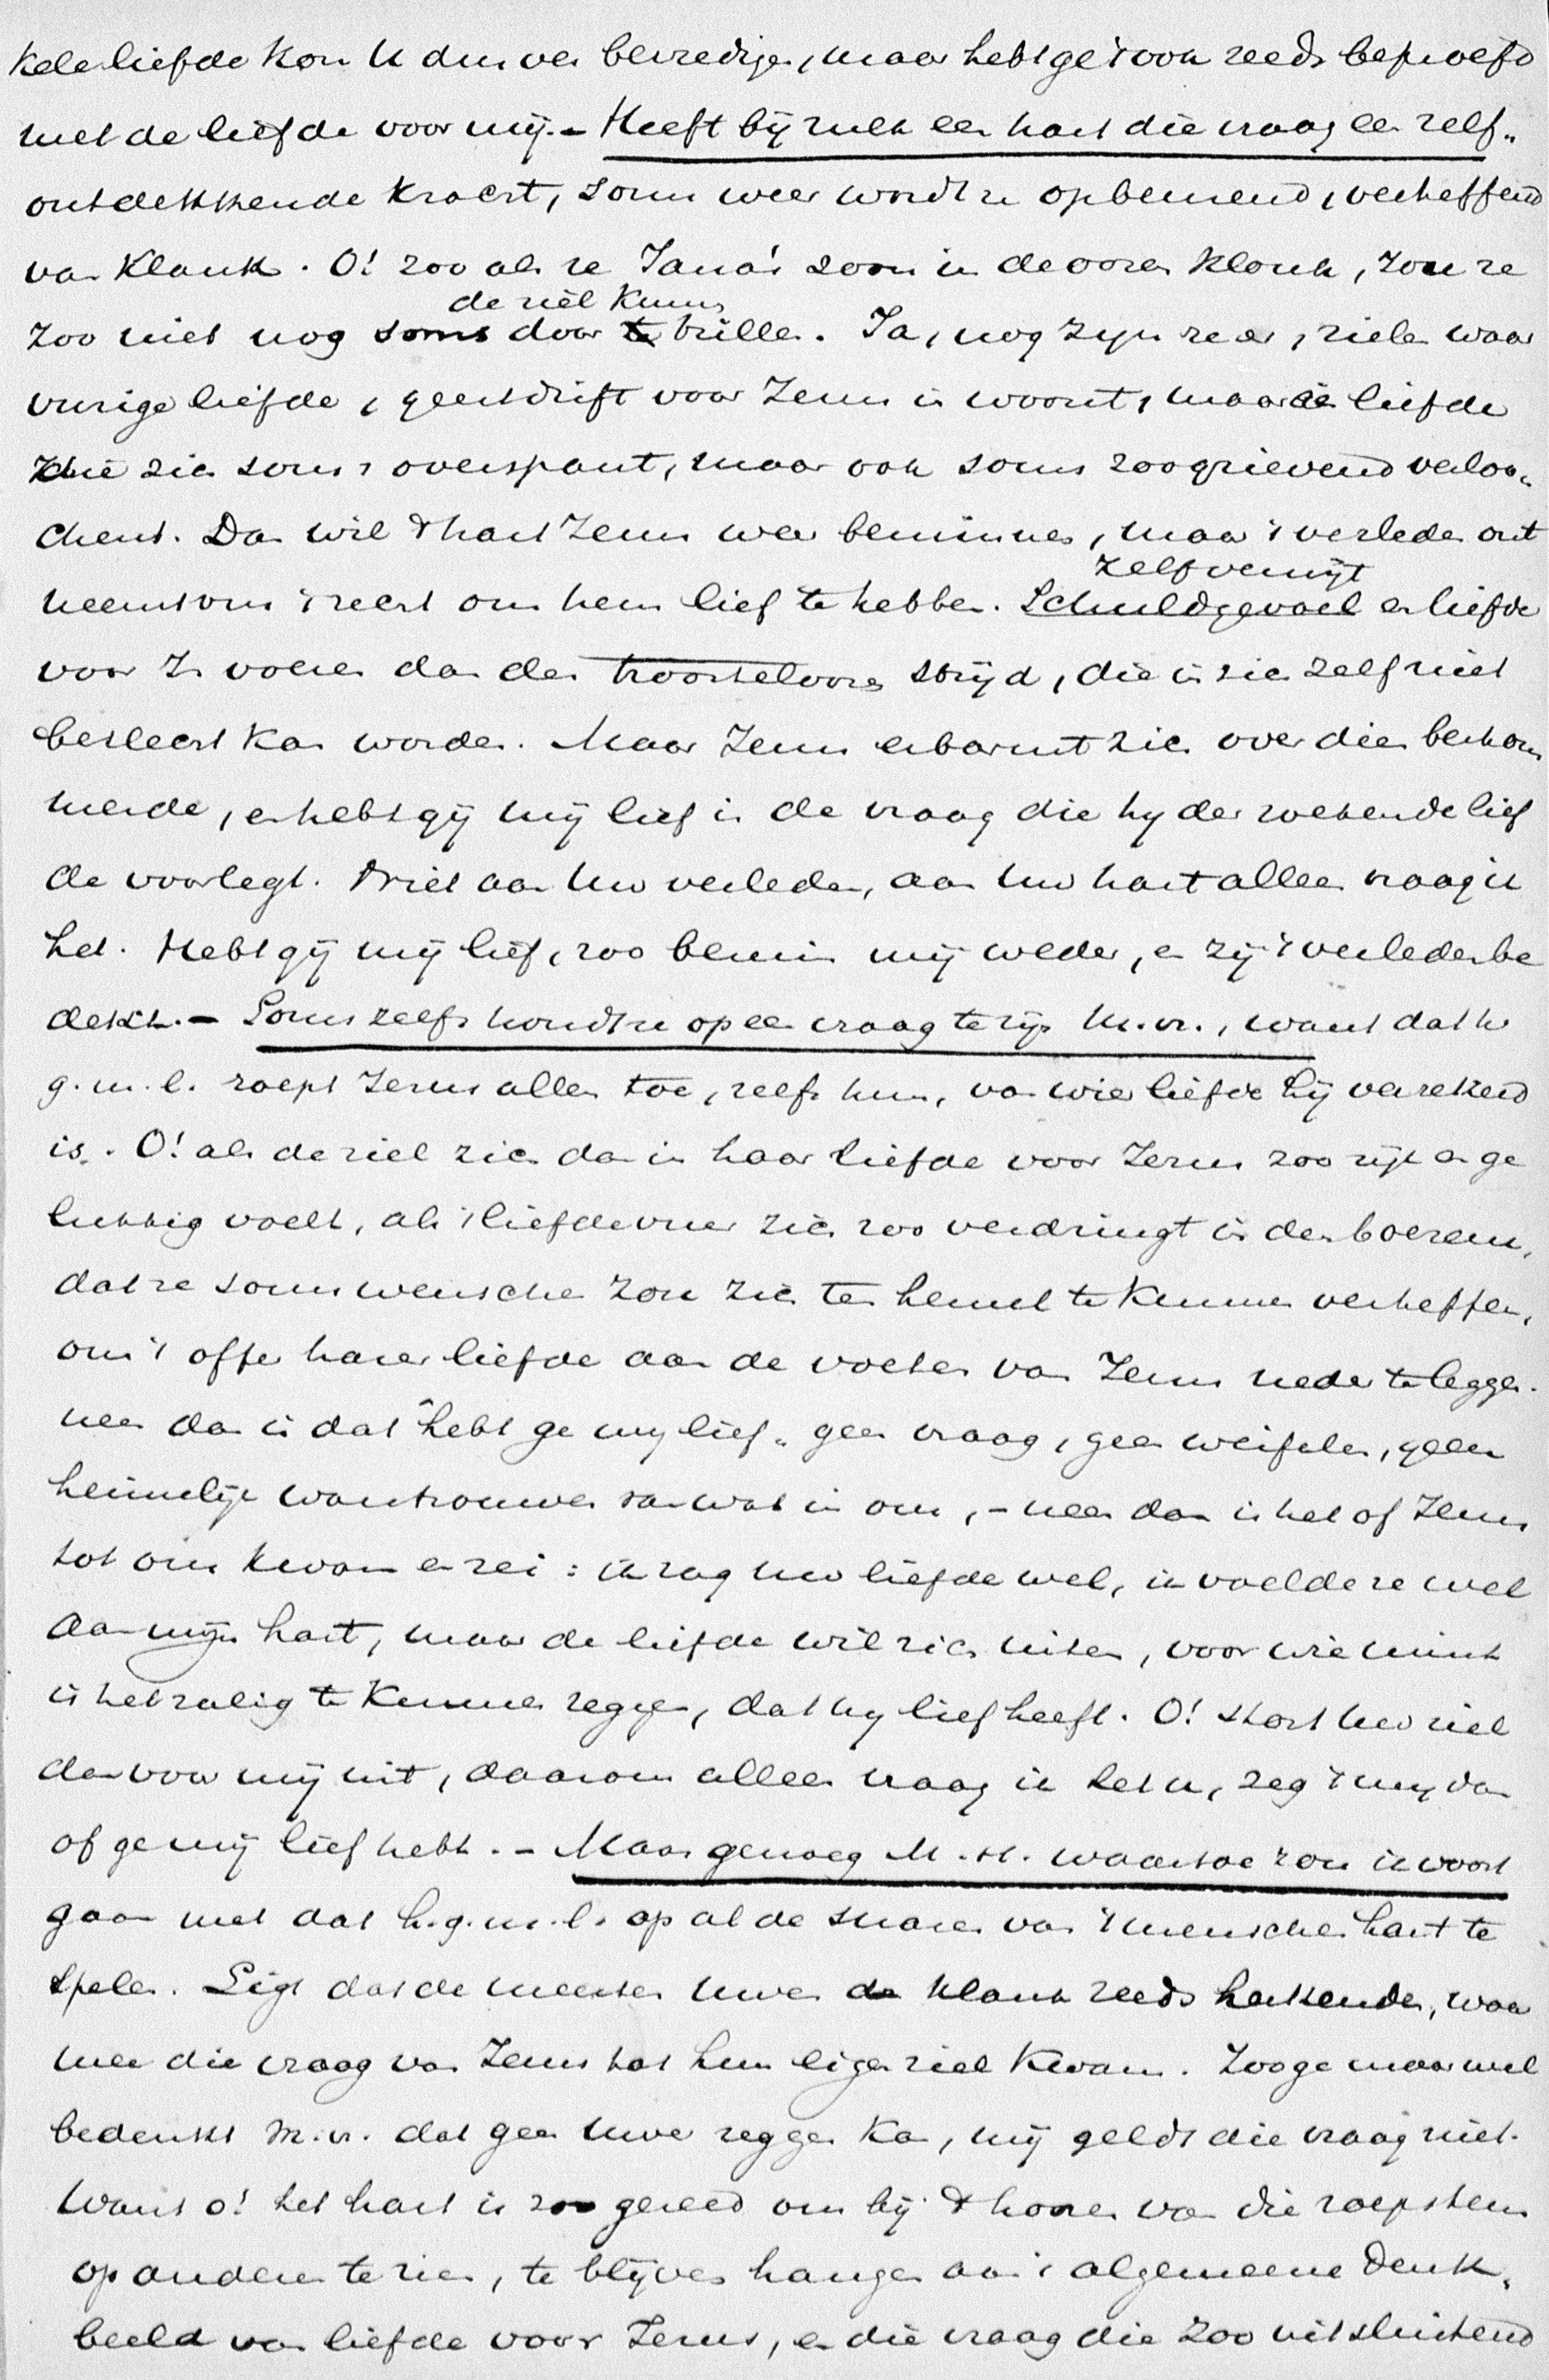 kele liefde kon U dus ver bevredigen, maar hebt ge 't ook reeds beproefd
met de liefde voor mij. – Heeft bij zulk een hart die vraag een zelf„
ontdekkende kracht, soms weer wordt ze opbeurend, verheffend
van klank. O! zoo als ze Jona's zoon in de ooren klonk, zou ze
de ziel kunn
zoo niet nog soms door te trillen. Ja, nog zijn ze er, zielen waar
vurige liefde, geestdrift voor Jezus in woont, maar een liefde
die zich soms overspant, maar ook soms zoo grievend verloo„
chent. Dan wil 't hart Jezus weer beminnen, maar 't verleden ont
zelfverwijt
neemt ons 't recht om hem lief te hebben. Schuldgevoel en liefde
voor J. voeren dan den troosteloozen strijd, die in zich zelf niet
beslecht kan worden. Maar Jezus erbarmt zich over dien bekom
merde, en hebt gij mij lief is de vraag die hy der zoekende lief
de voorlegt. Niet aan Uw verleden, aan Uw hart alleen vraag ik
het. Hebt gij mij lief, zoo bemin mij weder, en zij 't verleden be
dekt. – Soms zelfs houdt ze op een vraag te zijn M.vr., want dat h
g.m.l. roept Jezus allen toe, zelfs hun, van wier liefde hij verzekerd
is. O! als de ziel zich dan in haar liefde voor Jezus zoo rijk en ge
lukkig voelt, als 't liefdevuur zich zoo verdringt in den boezem,
dat ze soms wenschen zou zich ten hemel te kunnen verheffen,
om 't offer harer liefde aan de voeten van Jezus neder te leggen.
neen dan is dat "hebt ge my lief„ geen vraag, geen weifelen, geen
heimelijk wantrouwen van wat in ons, – neen dan is het of Jezus
tot ons kwam en zei: ik zag Uw liefde wel, ik voelde ze wel
aan mijn hart, maar de liefde wil zich uiten, voor wie mint
is het zalig te kunnen zeggen, dat hy lief heeft. O! stort Uw ziel
dan voor mij uit, daarom alleen vraag ik het U, zeg 't my dan
of ge mij lief hebt. – Maar genoeg M.H. waartoe zou ik voort
gaan met dat h.g.m.l. op al de snaren van 't menschenhart te
spelen. Ligt dat de meesten Uwer den klank reeds herkenden, waar
mee die vraag van Jezus tot hun eigen ziel kwam. Zoo ge maar wel
bedenkt M.vr. dat geen Uwer zeggen kan, mij geldt die vraag niet.
Want o! het hart is zoo gereed om bij 't hooren van die roepstem
op anderen te zien, te blijven hangen aan 't algemeene denk„
beeld van liefde voor Jezus, en die vraag die zoo uitsluitend